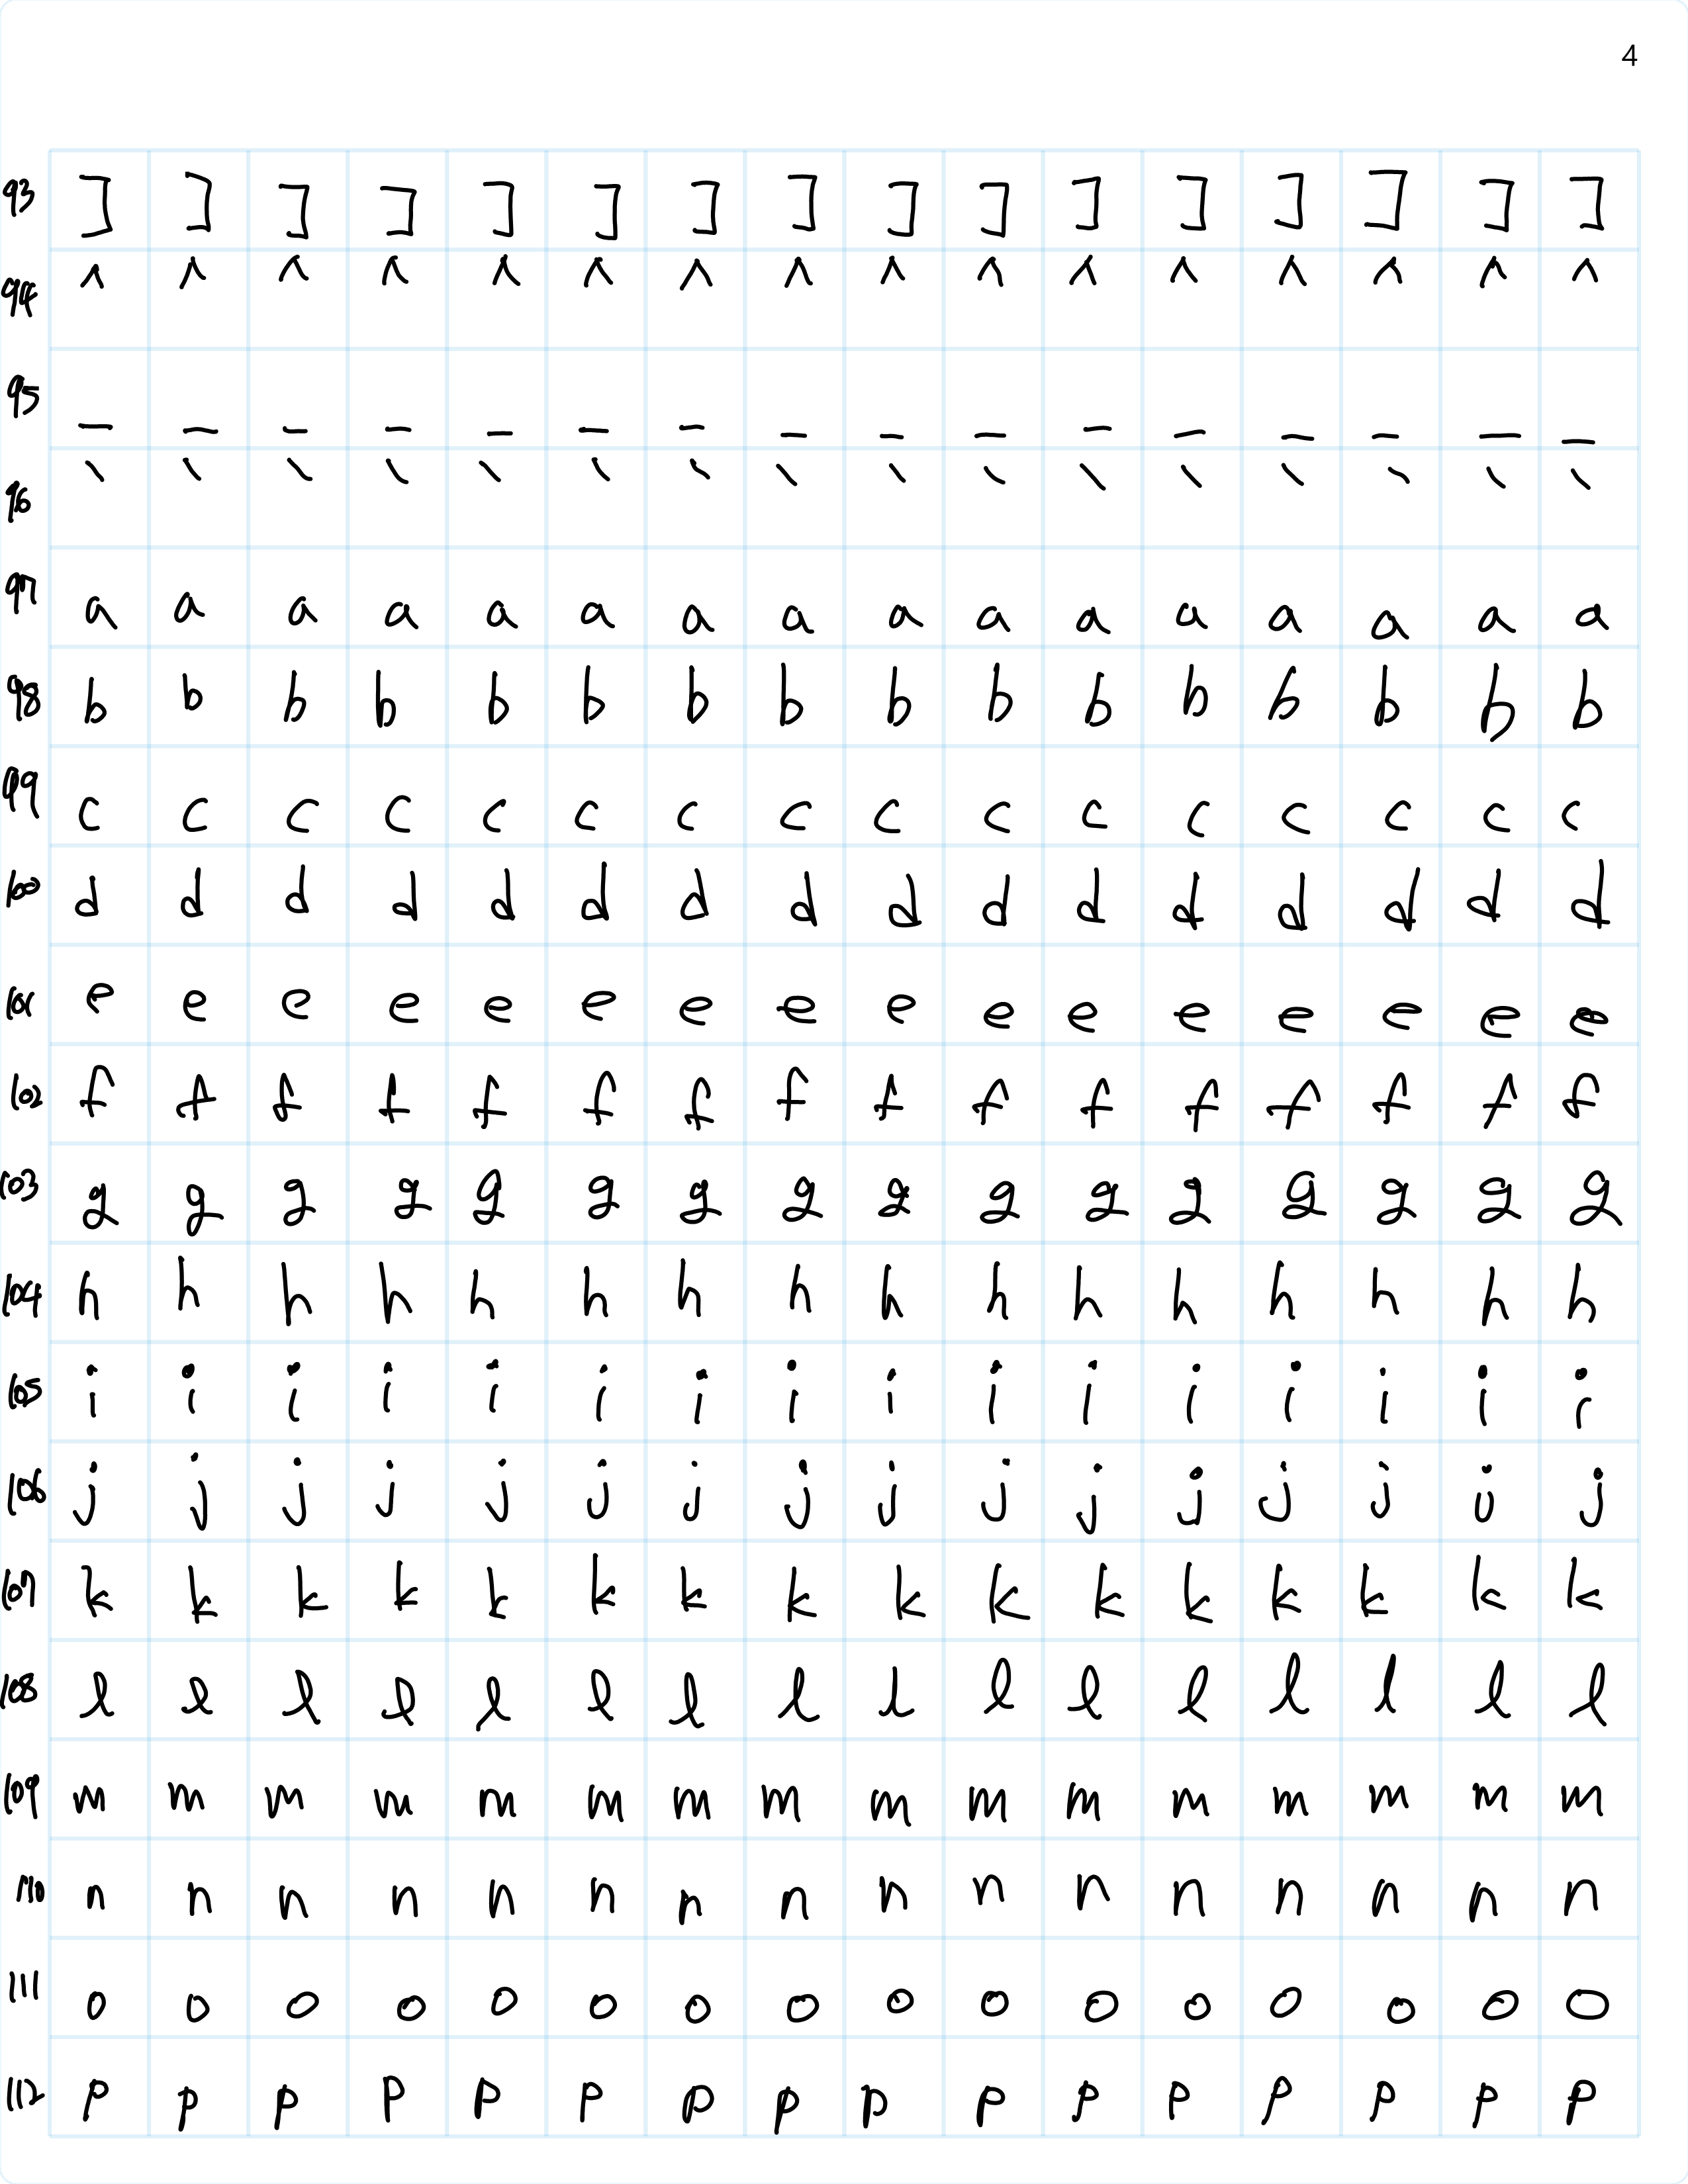 4
93 ] ] ] ] ] ] ] ] ] ] ] ] ] ] ] ]
94 ^ ^ ^ ^ ^ ^ ^ ^ ^ ^ ^ ^ ^ ^ ^ ^
95 _ _ _ _ _ _ _ _ _ _ _ _ _ _ _ _
96 ` ` ` ` ` ` ` ` ` ` ` ` ` ` ` `
97 a a a a a a a a a a a a a a a a
98 b b b b b b b b b b b b b b b b
99 c c c c c c c c c c c c c c c c
100 d d d d d d d d d d d d d d d d
101 e e e e e e e e e e e e e e e e
102 f f f f f f f f f f f f f f f f
103 g g g g g g g g g g g g g g g g
104 h h h h h h h h h h h h h h h h
105 i i i i i i i i i i i i i i i i
106 j j j j j j j j j j j j j j j j
107 k k k k k k k k k k k k k k k k
108 l l l l l l l l l l l l l l l l
109 m m m m m m m m m m m m m m m m
110 n n n n n n n n n n n n n n n n
111 o o o o o o o o o o o o o o o o
112 p p p p p p p p p p p p p p p p